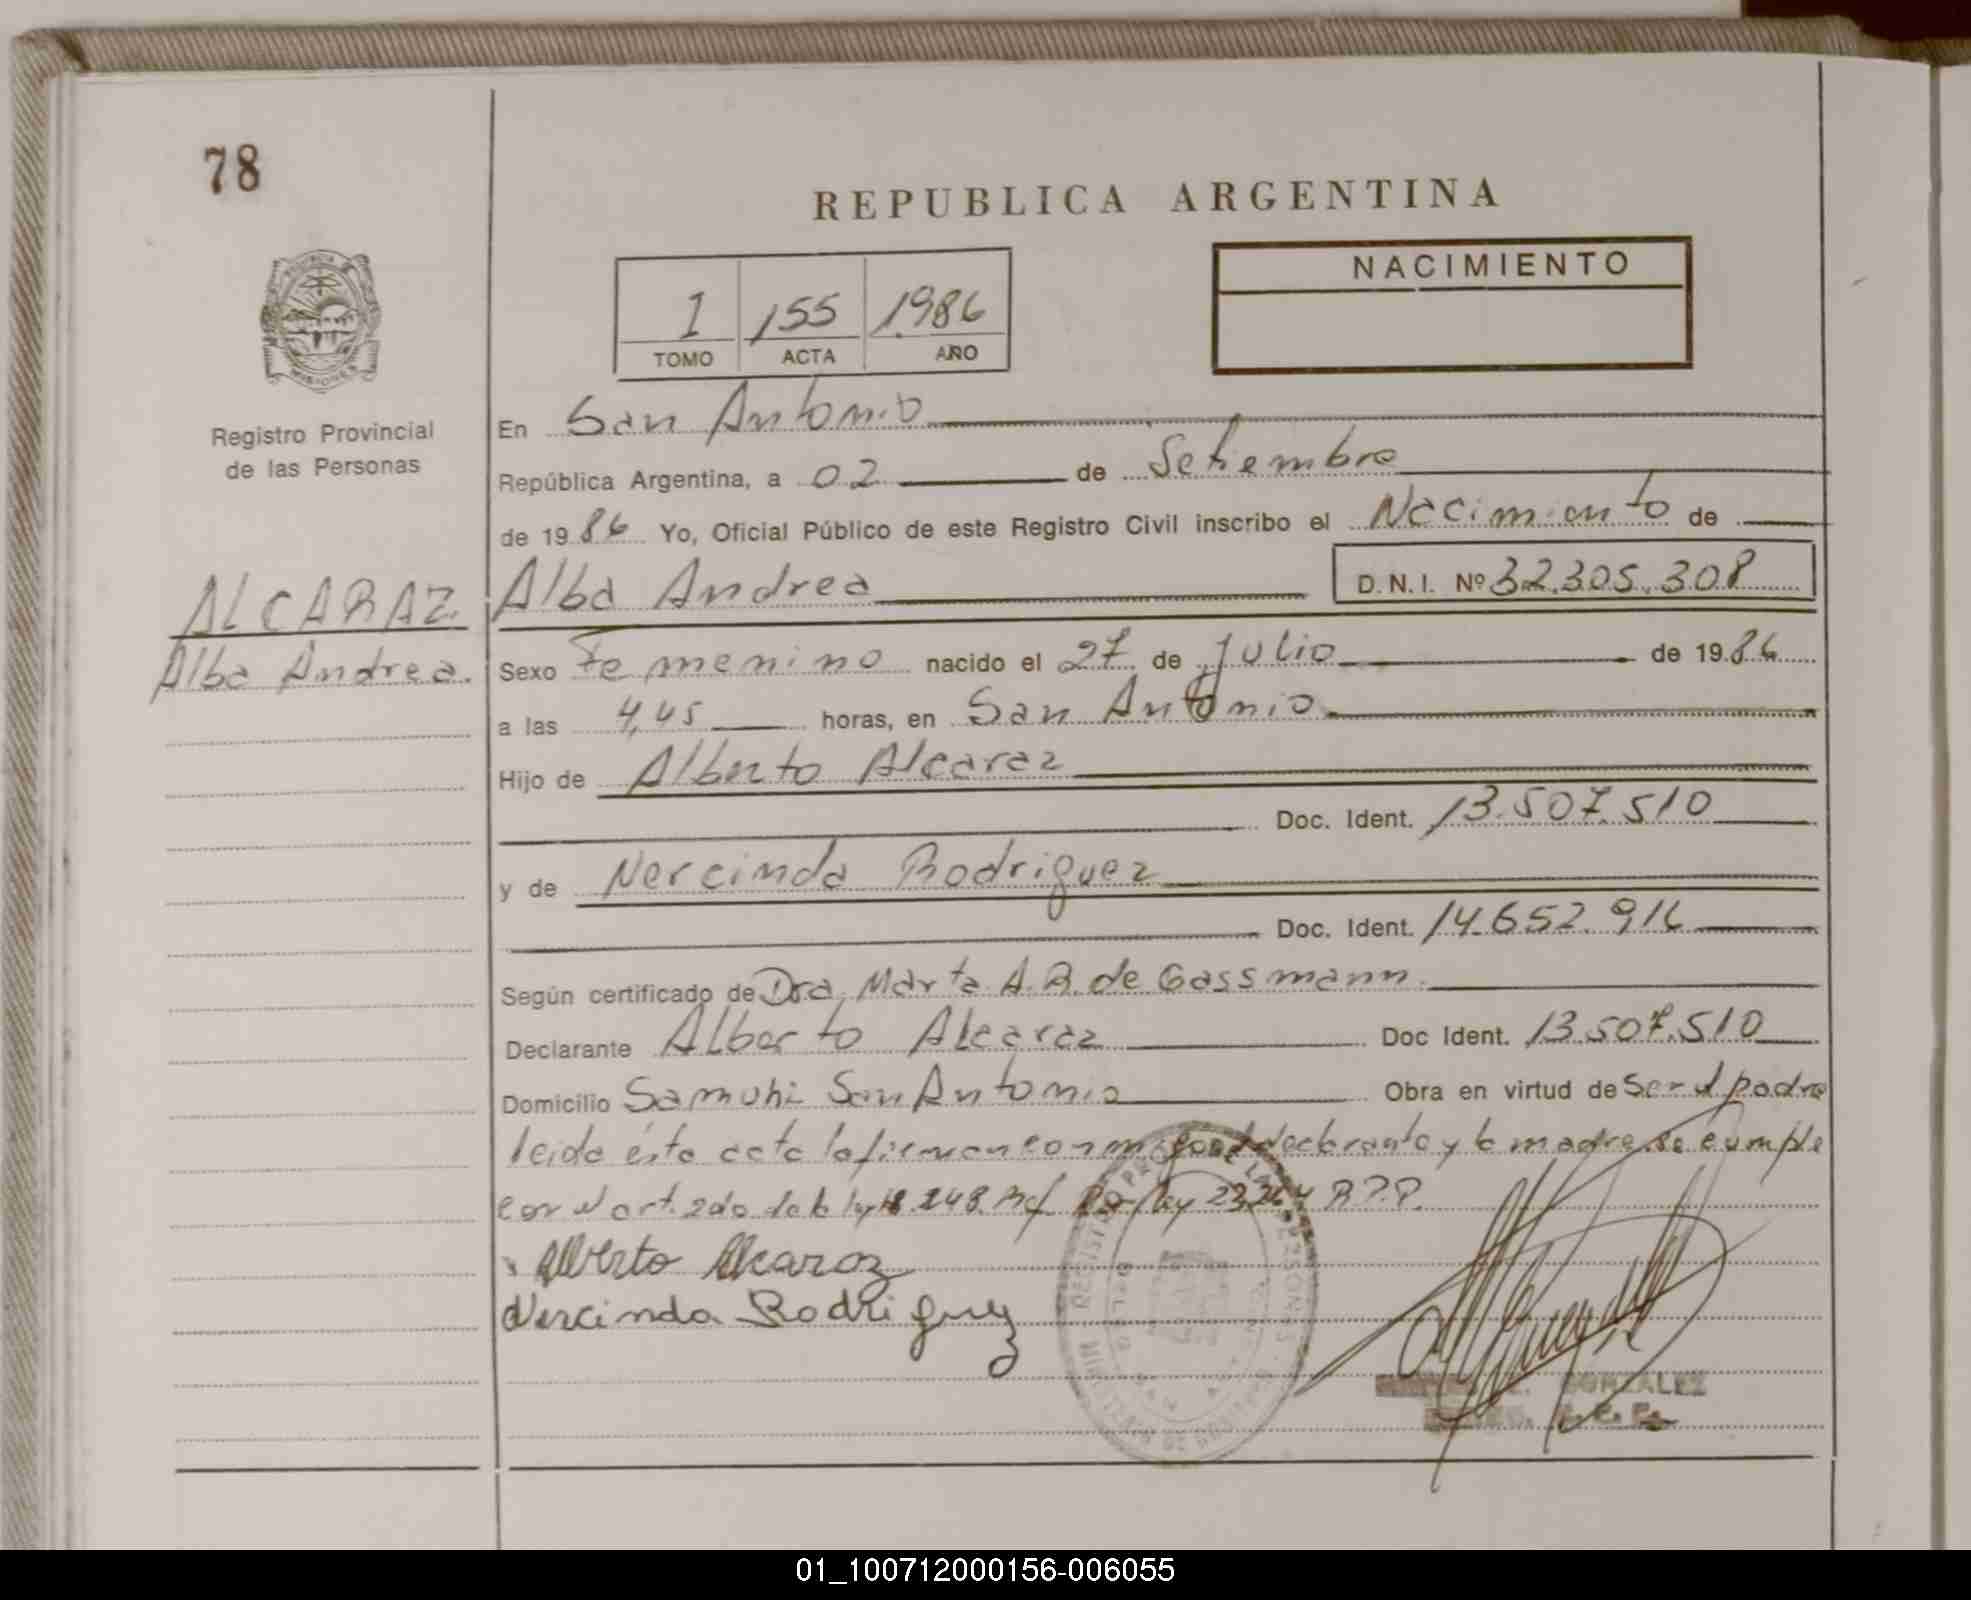 78
REPUBLICA ARGENTINA
NACIMIENTO
I 155 1986
TOMO ACTA AÑO
PROVINCIA DE
MISIONES
Registro Provincial
de las Personas
En San Antonio
República Argentina, a 02 de Setiembre
de 1986 Yo, Oficial Público de este Registro Civil inscribo el Nacimiento de
ALCARAZ Alba Andrea D.N.I. Nº 32.305.308
Alba Andrea. Sexo Femenino nacido el 27 de Julio de 1986
a las 4,45 horas, en San Antonio
Hijo de Alberto Alcaraz
Doc. Ident. 13.507.510
y de Nercinda Rodriguez
Doc. Ident. 14.652.916
Según certificado de Dra. Marta A.R. de Gassmann.
Declarante Alberto Alcaraz Doc Ident. 13.507.510
Domicilio Samuhi San Antonio Obra en virtud de Ser el padre
leida ésta acta la firman conmigo el declarante y la madre. se cumple
con el art. 2do de la ley 18.248. Mod. Por ley 23.264 R.P.P.
Alberto Alcaraz
Nercinda Rodriguez
GONZALEZ
01_100712000156-006055